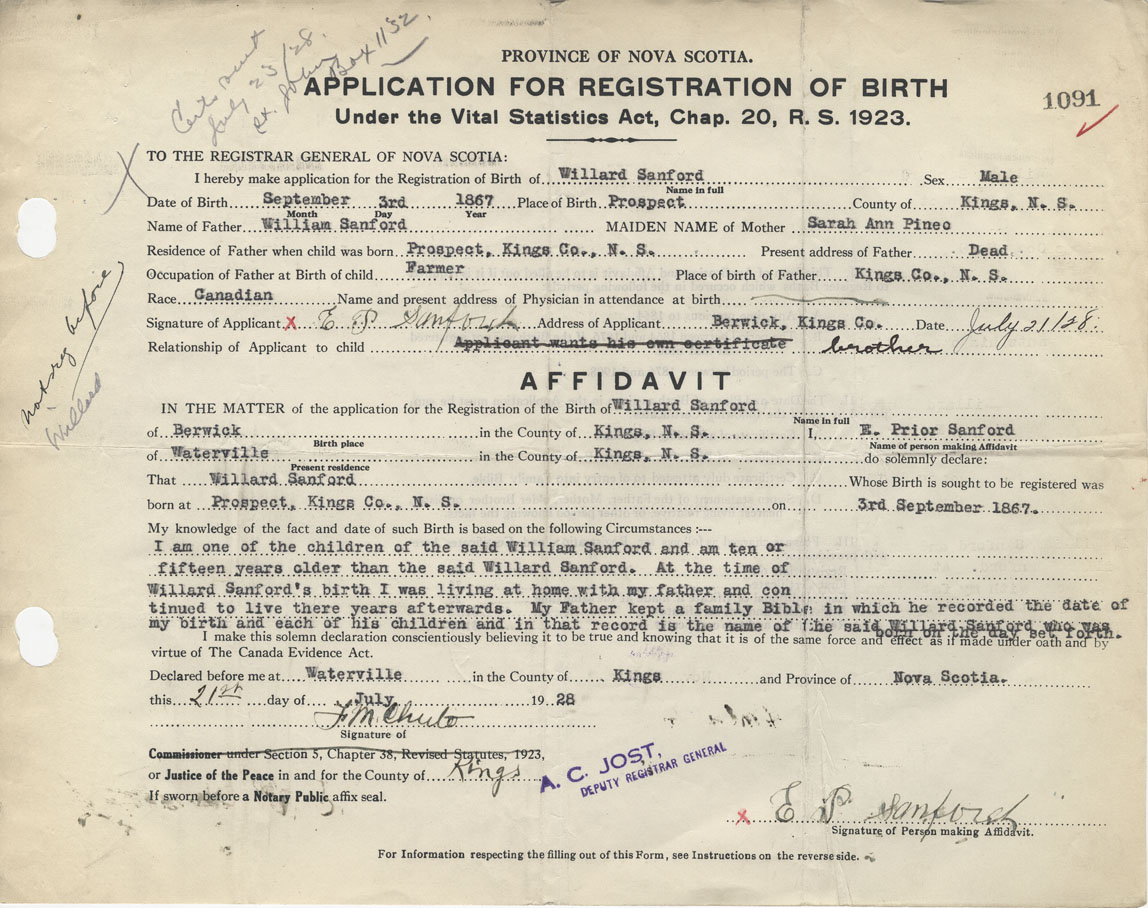 Certs sent
July 23/28.
St. John
Box 1132.
PROVINCE OF NOVA SCOTIA.
APPLICATION FOR REGISTRATION OF BIRTH
1091
Under the Vital Statistics Act, Chap. 20, R. S. 1923.
TO THE REGISTRAR GENERAL OF NOVA SCOTIA:
I hereby make application for the Registration of Birth of Willard Sanford Sex Male
Name in full
Date of Birth September 3rd 1867 Place of Birth Prospect County of Kings, N. S.
Month Day Year
Name of Father William Sanford MAIDEN NAME of Mother Sarah Ann Pineo
Residence of Father when child was born Prospect, Kings Co., N. S. Present address of Father Dead
Occupation of Father at Birth of child Farmer Place of birth of Father Kings Co., N. S.
Race Canadian Name and present address of Physician in attendance at birth
Signature of Applicant X E P Sanford Address of Applicant Berwick, Kings Co. Date July 21/28.
Relationship of Applicant to child Applicant wants his own certificate brother
before
Willard
AFFIDAVIT
IN THE MATTER of the application for the Registration of the Birth of Willard Sanford
Name in full
of Berwick in the County of Kings, N. S. I, E. Prior Sanford
Birth place Name of person making Affidavit
of Waterville in the County of Kings, N. S. do solemnly declare:
Present residence
That Willard Sanford Whose Birth is sought to be registered was
born at Prospect, Kings Co., N. S. on 3rd September 1867.
My knowledge of the fact and date of such Birth is based on the following Circumstances :---
I am one of the children of the said William Sanford and am ten or
fifteen years older than the said Willard Sanford. At the time of
Willard Sanford's birth I was living at home with my father and con
tinued to live there years afterwards. My Father kept a family Bible in which he recorded the date of
my birth and each of his children and in that record is the name of the said Willard Sanford who was
born on the day set forth.
I make this solemn declaration conscientiously believing it to be true and knowing that it is of the same force and effect as if made under oath and by
virtue of The Canada Evidence Act.
Declared before me at Waterville in the County of Kings and Province of Nova Scotia.
this 21st day of July 1928
F M Chute
Signature of
Commissioner under Section 5, Chapter 38, Revised Statutes, 1923,
or Justice of the Peace in and for the County of Kings
A. C. JOST,
DEPUTY REGISTRAR GENERAL
If sworn before a Notary Public affix seal.
X E P Sanford
Signature of Person making Affidavit.
For Information respecting the filling out of this Form, see Instructions on the reverse side.